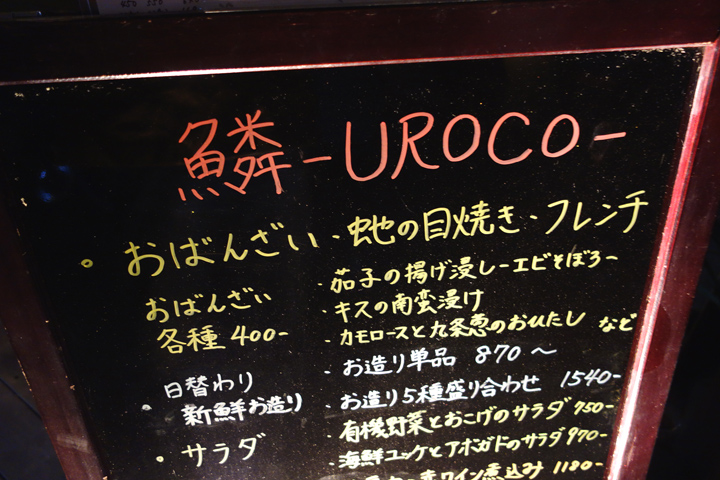 鱗-UROCO-
。おばんざい・蛇の目焼き・フレンチ
おばんざい
各種 400-
・茄子の揚げ浸し-エビそぼろ-
・キスの南蛮漬け
・カモロースと九条葱のおひたし など
・日替わり
新鮮お造り
・お造り単品 870〜
・お造り5種盛り合わせ 1540-
・サラダ
・有機野菜とおこげのサラダ 750-
・海鮮ユッケとアボガドのサラダ 970-
赤ワイン煮込み 1180-